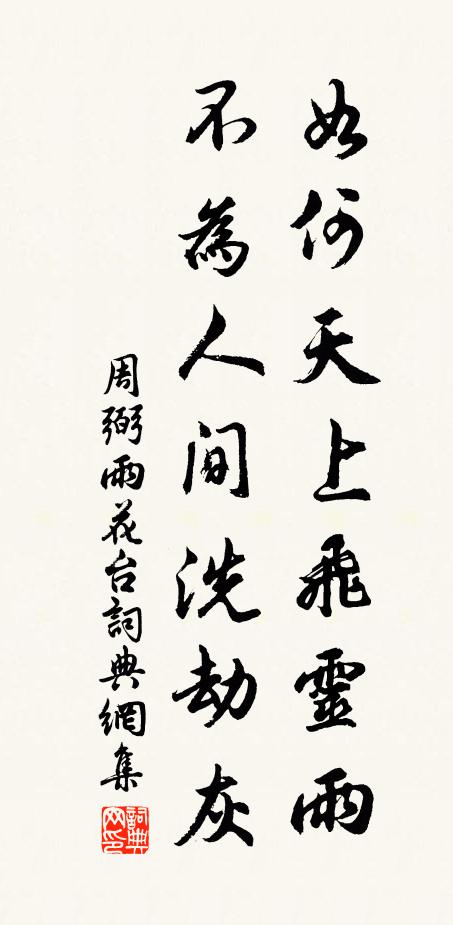 如何天上飛靈雨
不為人間洗劫灰
周弼雨花台詞典網集
詞典
网印